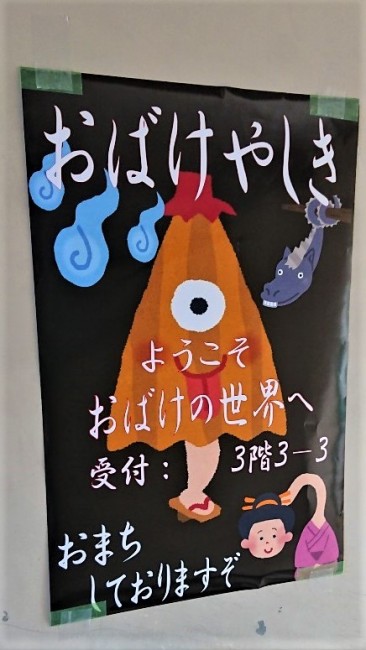 おばけやしき
ようこそ
おばけの世界へ
受付： 3階3-3
おまち
しておりますぞ